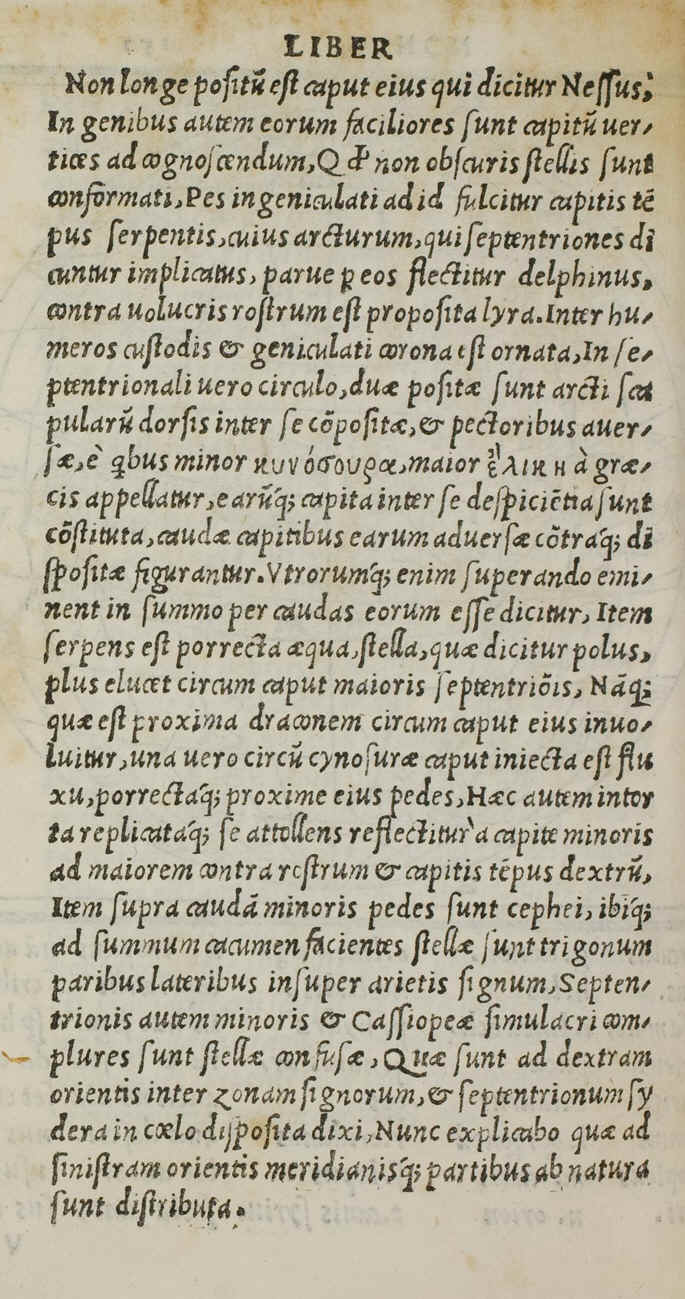 LIBER
Non longe positũ est caput eius qui dicitur Nessus,
In genibus autem eorum faciliores sunt capitũ uer/
tices ad cognoscendum, Qđ non obscuris stellis sunt
conformati, Pes ingeniculati ad id fulcitur capitis tẽ
pus serpentis, cuius arcturum, qui septentriones di
cuntur implicatus, parue ꝑ eos flectitur delphinus,
contra uolucris rostrum est proposita lyra. Inter hu/
meros custodis & geniculati corona est ornata, In se/
ptentrionali uero circulo, duæ positæ sunt arcti sca
pularũ dorsis inter se cõpositæ, & pectoribus auer/
sæ, è qbus minor κυνόσουρα, maior ἑλικη à græ/
cis appellatur, earũq; capita inter se despiciẽtia sunt
cõstituta, caudæ capitibus earum aduersæ cõtraq; di
spositæ figurantur. Vtrorumq; enim superando emi/
nent in summo per caudas eorum esse dicitur, Item
serpens est porrecta æqua, stella, quæ dicitur polus,
plus elucet circum caput maioris septentriõis, Nãq;
quæ est proxima draconem circum caput eius inuo/
luitur, una uero circũ cynosuræ caput iniecta est flu
xu, porrectaq; proxime eius pedes, Hæc autem intor
ta replicataq; se attollens reflectitur à capite minoris
ad maiorem contra rostrum & capitis tẽpus dextrũ,
Item supra caudã minoris pedes sunt cephei, ibiq;
ad summum cacumen facientes stellæ sunt trigonum
paribus lateribus insuper arietis signum, Septen/
trionis autem minoris & Cassiopeæ simulacri com/
plures sunt stellæ confusæ, Quæ sunt ad dextram
orientis inter zonam signorum, & septentrionum sy
dera in cœlo disposita dixi, Nunc explicabo quæ ad
sinistram orientis meridianisq; partibus ab natura
sunt distributa.